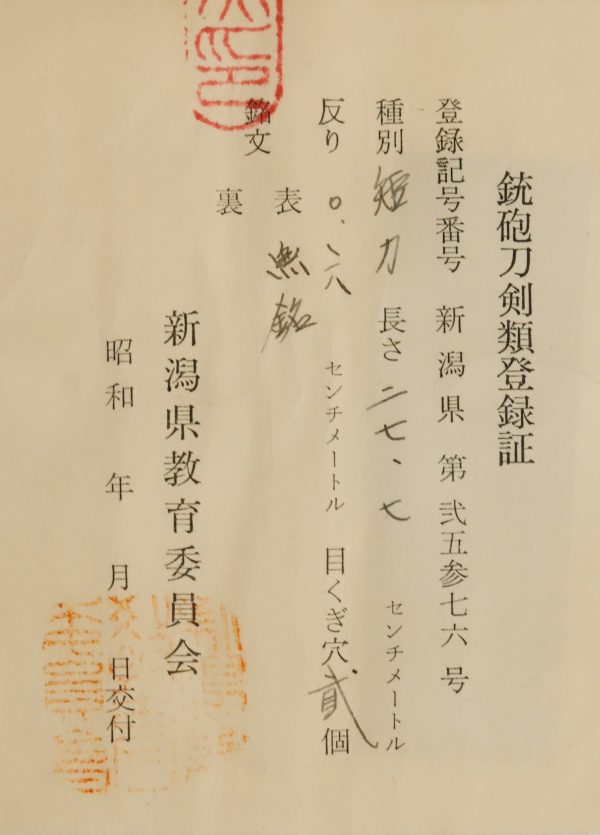 銃砲刀剣類登録証
登録記号番号 新潟県 第 弐五参七六 号
種別 短刀 長さ 二七、七 センチメートル
反り 〇、一八 センチメートル 目くぎ穴 貳 個
銘文 表 無銘
裏
新潟県教育委員会
昭和 年 月 日交付